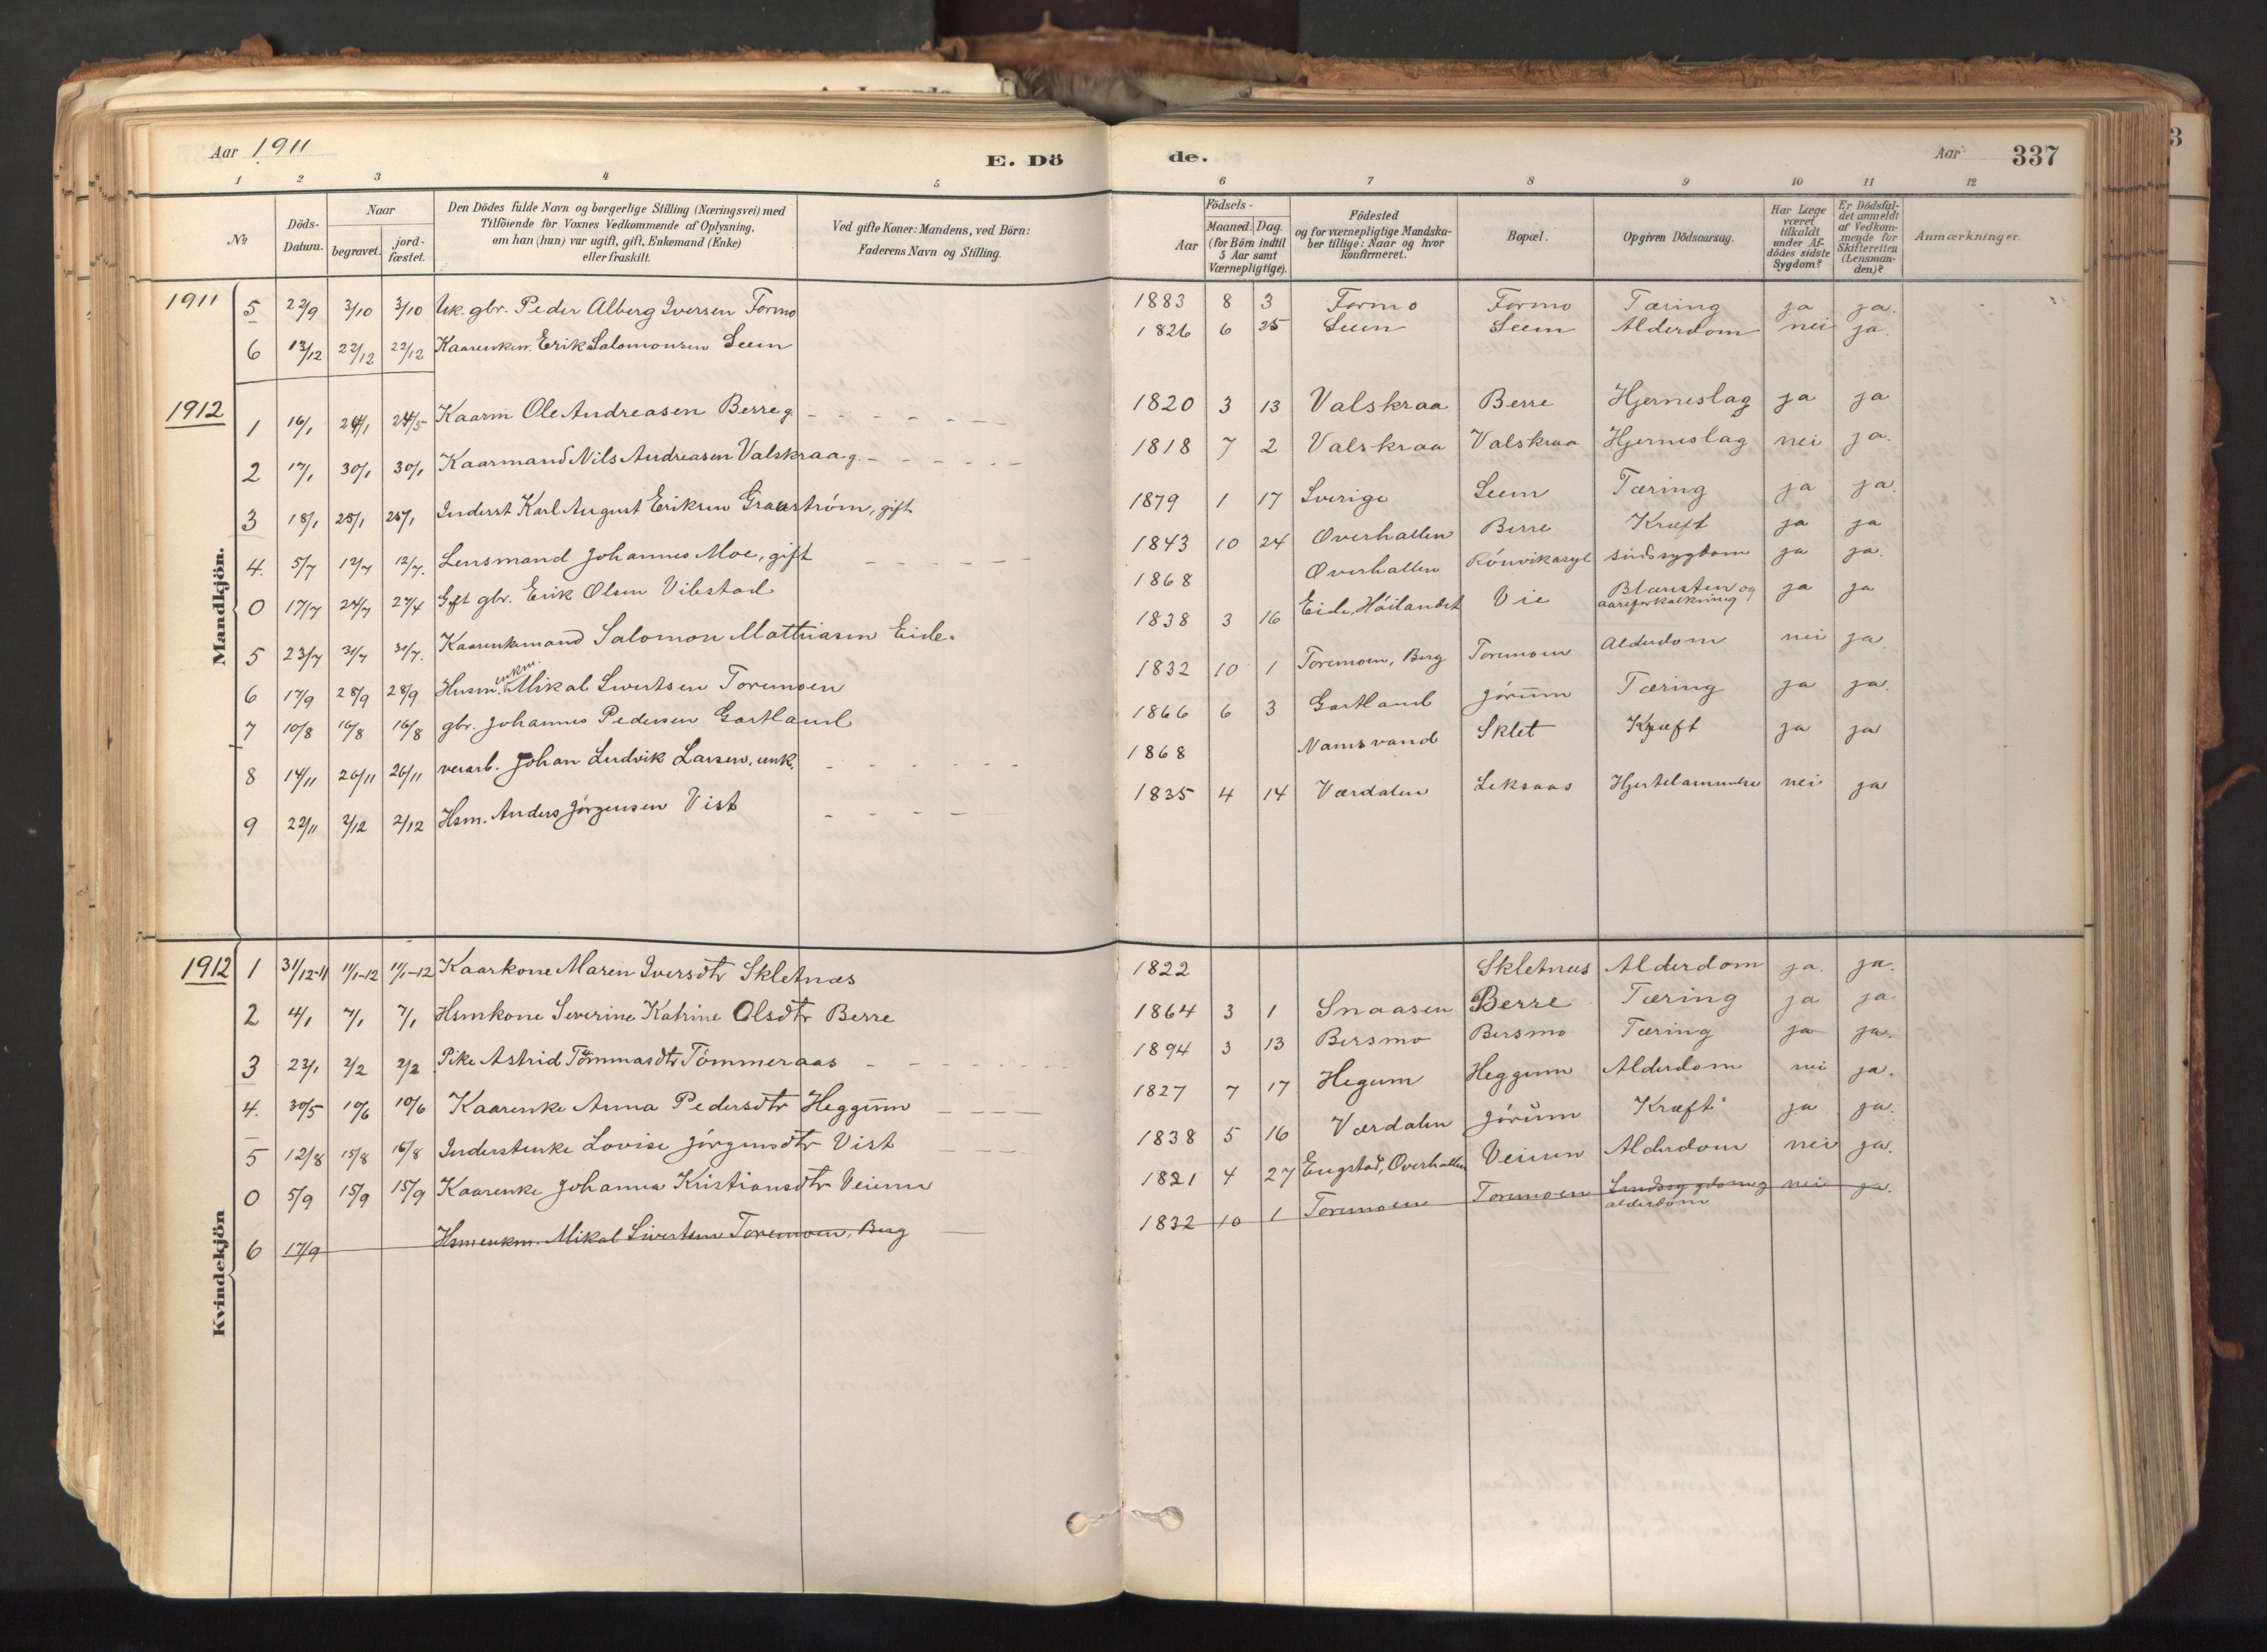 Aar 1911 E. Dö de. Aar 337
1 2 3 4 5 6 7 8 9 10 11 12
№ Döds-Datum. Naar begravet. jord-fæstet. Den Dödes fulde Navn og borgerlige Stilling (Næringsvei) med Tilföiende for Voxnes Vedkommende af Oplysning, om han (hun) var ugift, gift, Enkemand (Enke) eller fraskilt. Ved gifte Koner: Mandens, ved Börn: Faderens Navn og Stilling. Födsels- Aar Maaned. Dag. (for Börn indtil 5 Aar samt Værnepligtige). Födested og for værnepligtige Mandskaber tillige: Naar og hvor konfirmeret. Bopæl. Opgiven Dödsaarsag. Har Læge været tilkaldt under Afdödes sidste Sygdom? Er Dödsfaldet anmeldt af Vedkommende for Skifteretten (Lensmanden)? Anmærkninger.
Mandkjön.
1911 5 22/9 3/10 3/10 Uk. gbr. Peder Alberg Iversen Formo 1883 8 3 Formo Formo Tæring ja ja.
6 13/12 22/12 22/12 Kaarenkem. Erik Salomonsen Seem 1826 6 25 Seem Seem Alderdom nei ja.
1912 1 16/1 24/1 24/5 Kaarm Ole Andreasen Berre g. 1820 3 13 Valskraa Berre Hjerneslag ja ja
2 17/1 30/1 30/1 Kaarmand Nils Andreasen Valskraa g. 1818 7 2 Valskraa Valskraa Hjerneslag nei ja.
3 18/1 25/1 25/1 Inderst Karl August Eriksen Graaström, gift 1879 1 17 Sverige Seem Tæring ja ja.
4. 5/7 12/7 12/7. Lensmand Johannes Moe, gift 1843 10 24 Overhallen Berre Kræft ja ja
0 17/7 24/7 27/4 Gift gbr. Erik Olsen Vibstad 1868 Overhallen Rönvikasyl sindssygdom ja ja.
5 23/7 31/7 31/7. Kaarenkemand Salomon Mathiasen Eide. 1838 3 16 Eide, Höilandet Vie Blæresten og aareforkalkning ja ja
6 17/9 28/9 28/9 Husm. enkm. Mikal Sivertsen Toremoen 1832 10 1 Toremoen, Berg Toremoen Alderdom nei ja.
7 10/8 16/8 16/8 gbr. Johannes Pedersen Gartland 1866 6 3 Gartland Jörŭm Tæring ja ja.
8 14/11 26/11 26/11 verarb. Johan Ludvik Larsen, enk. 1868 Namsvand Sklet Kræft ja ja
9 22/11 2/12 2/12 Hsm. Anders Jörgensen Vist 1835 4 14 Værdalen Leksaas Hjertelammelse nei ja
Kvindekjön
1912 1 31/12-11 11/1-12 11/1-12 Kaarkone Maren Iversdtr Skletnæs 1822 Skletnæs Alderdom ja. ja.
2 4/1 7/1 7/1 Hsmkone Severine Katrine Olsdtr Berre 1864 3 1 Snaasen Berre Tæring ja ja
3 23/1 2/2 2/2 Pike Astrid Tömmasdtr Tömmeraas 1894 3 13 Bersmo Bersmo Tæring ja ja.
4. 30/5 10/6 10/6 Kaarenke Anna Pedersdtr Heggŭm 1827 7 17 Hegum Heggum Alderdom nei ja.
5 12/8 15/8 16/8 Inderstenke Lovise Jörgensdtr Vist 1838 5 16 Værdalen Jörŭm Kræft ja ja.
0 5/9 15/9 15/9 Kaarenke Johanna Kristiansdtr Veium 1821 4 27 Engstad, Overhallen Veiium Alderdom nei ja.
6 17/9 Hsmenkm. Mikal Sivertsen Toremoen, Berg 1832 10 1 Toremoen Toremoen Sindssygdom og alderdom nei ja.